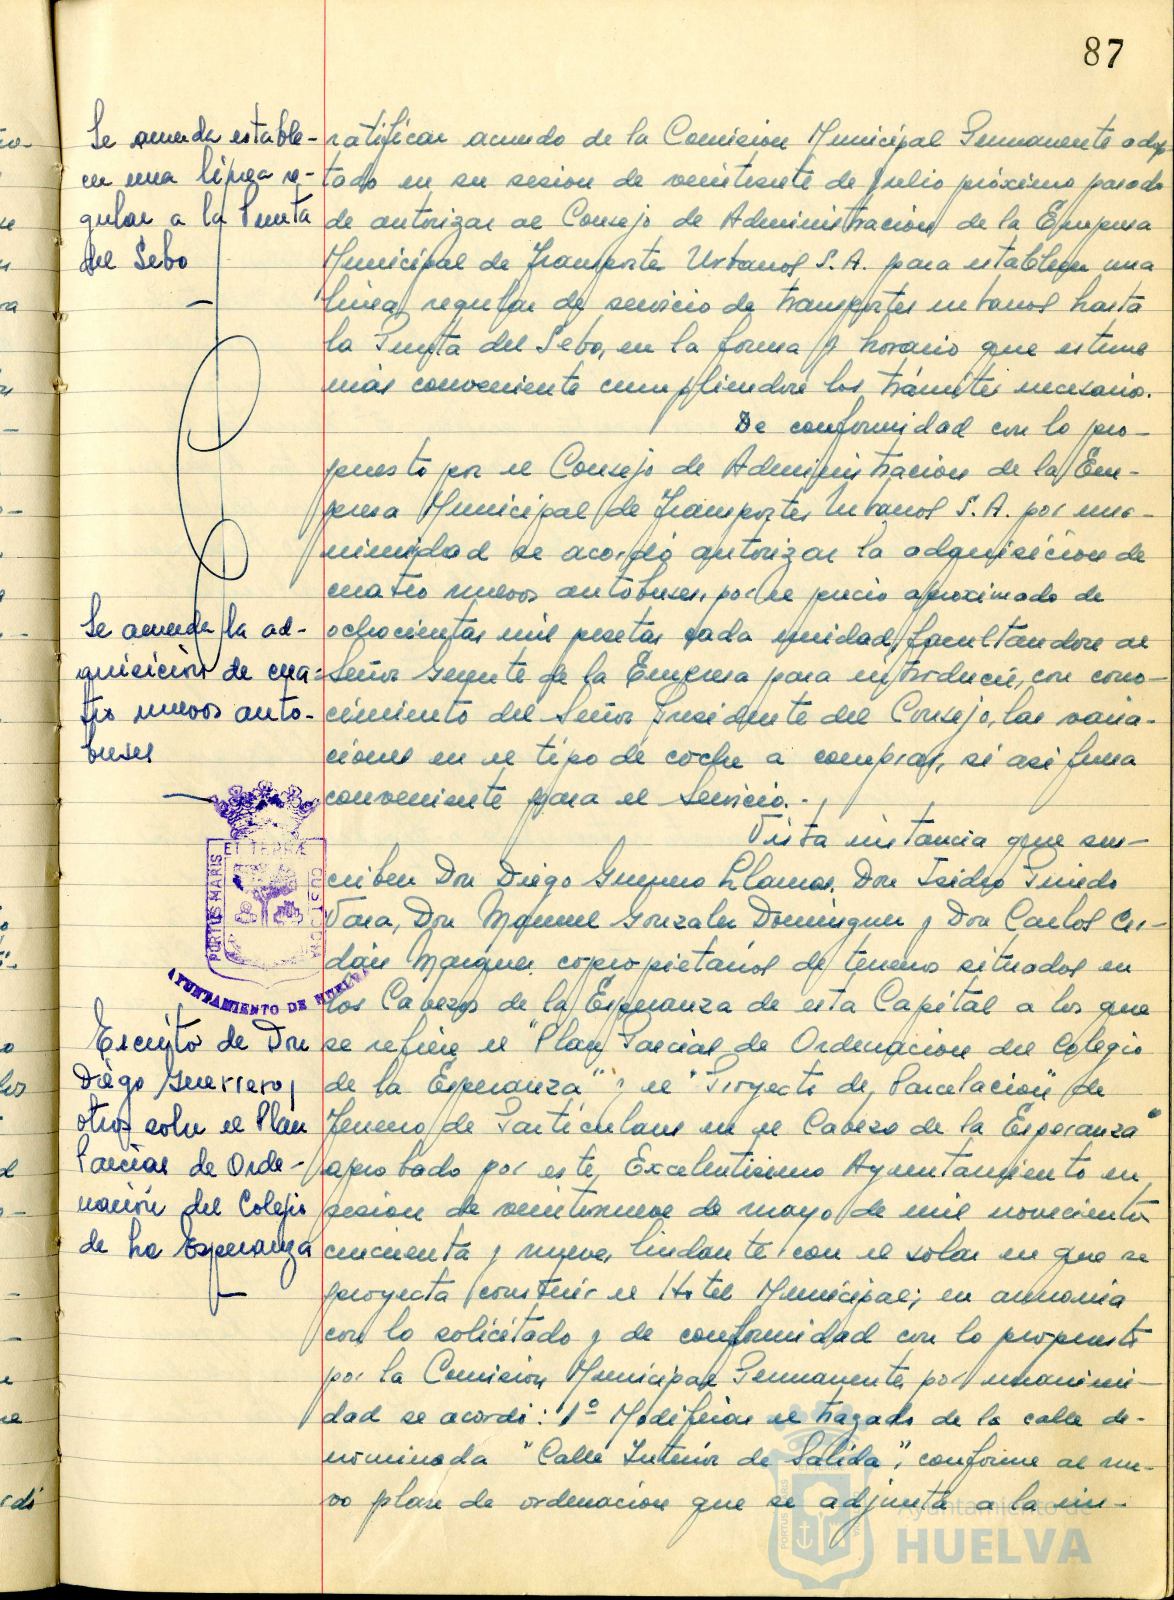 87
Se acuerda estable-
cer una línea re-
gular a la Punta
del Sebo
ratificar acuerdo de la Comisión Municipal Permanente adop
tado en su sesion de veintisiete de Julio próximo pasado
de autorizar al Consejo de Administración de la Empresa
Municipal de Transportes Urbanos S.A. para establecer una
línea regular de servicio de transportes urbanos hasta
la Punta del Sebo, en la forma y horario que estime
más conveniente cumpliendose los trámites necesarios.
De conformidad con lo pro-
puesto por el Consejo de Administracion de la Em-
presa Municipal de Transportes Urbanos S.A. por una-
nimidad se acordó autorizar la adquisición de
cuatro nuevos autobuses, por el precio aproximado de
Se acuerda la ad-
quisición de cua-
tro nuevos auto-
buses
ochocientas mil pesetas cada unidad, facultandose al
Señor Gerente de la Empresa para introducir, con cono-
cimiento del Señor Presidente del Consejo, las varia-
ciones en el tipo de coche a comprar, si asi fuera
conveniente para el servicio.-
Vista instancia que sus-
criben Don Diego Guerrero Llamas, Don Isidro Pinedo
Vara, Don Manuel Gonzalez Dominguez y Don Carlos Cer-
dán Marquez, copropietarios de terrenos situados en
los Cabezos de la Esperanza de esta Capital a los que
PORTUS MARIS ET TERRÆ CUSTODIA
AYUNTAMIENTO DE HUELVA
Escrito de Don
Diego Guerrero y
otros sobre el Plan
Parcial de Orde-
nación del Colegio
de La Esperanza
se refiere el "Plan Parcial de Ordenacion del Colegio
de la Esperanza" y el "Proyecto de Parcelacion de
Terreno de Particulares en el Cabezo de la Esperanza"
aprobado por este Excelentisimo Ayuntamiento en
sesion de veintinueve de mayo de mil novecientos
cincuenta y nueve, lindante con el solar en que se
proyecta construir el Hotel Municipal; en armonia
con lo solicitado y de conformidad con lo propuesto
por la Comision Municipal Permanente, por unanimi-
dad se acordó: 1º Modificar el trazado de la calle de-
nominada "Calle Interior de Salida", conforme al nue-
vo plan de ordenacion que se adjunta a la ins-
Ayuntamiento de
HUELVA